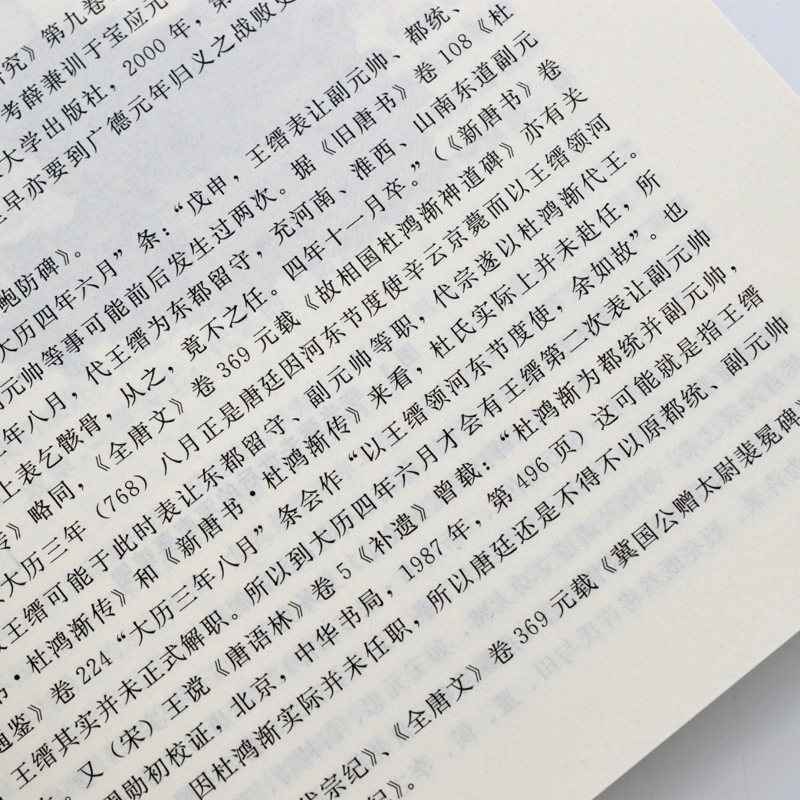 研究》第九卷
考薛兼训于宝应元
大学出版社，2000 年，第
早亦要到广德元年归义之战败史
鲍防碑》。
大历四年六月”条：“戊申，王缙表让副元帅、都统、
元帅等事可能前后发生过两次。据《旧唐书》卷 108《杜
年八月，代王缙为东都留守，充河南、淮西、山南东道副元
上表乞骸骨，从之，竟不之任。四年十一月卒。”（《新唐书》卷
传》略同，《全唐文》卷 369 元载《故相国杜鸿渐神道碑》亦有关
大历三年（768）八月正是唐廷因河东节度使辛云京薨而以王缙领河
王缙可能于此时表让东都留守、副元帅等职，代宗遂以杜鸿渐代王。
书·杜鸿渐传》和《新唐书·杜鸿渐传》来看，杜氏实际上并未赴任，所
通鉴》卷 224“大历三年八月”条会作“以王缙领河东节度使，余如故”。也
王缙其实并未正式解职。所以到大历四年六月才会有王缙第二次表让副元帅
。又（宋）王谠《唐语林》卷 5《补遗》曾载：“杜鸿渐为都统并副元帅，
周勋初校证，北京，中华书局，1987 年，第 496 页）这可能就是指王缙
因杜鸿渐实际并未任职，所以唐廷还是不得不以原都统、副元帅
代宗纪》、《全唐文》卷 369 元载《冀国公赠太尉裴冕碑》
纪》。